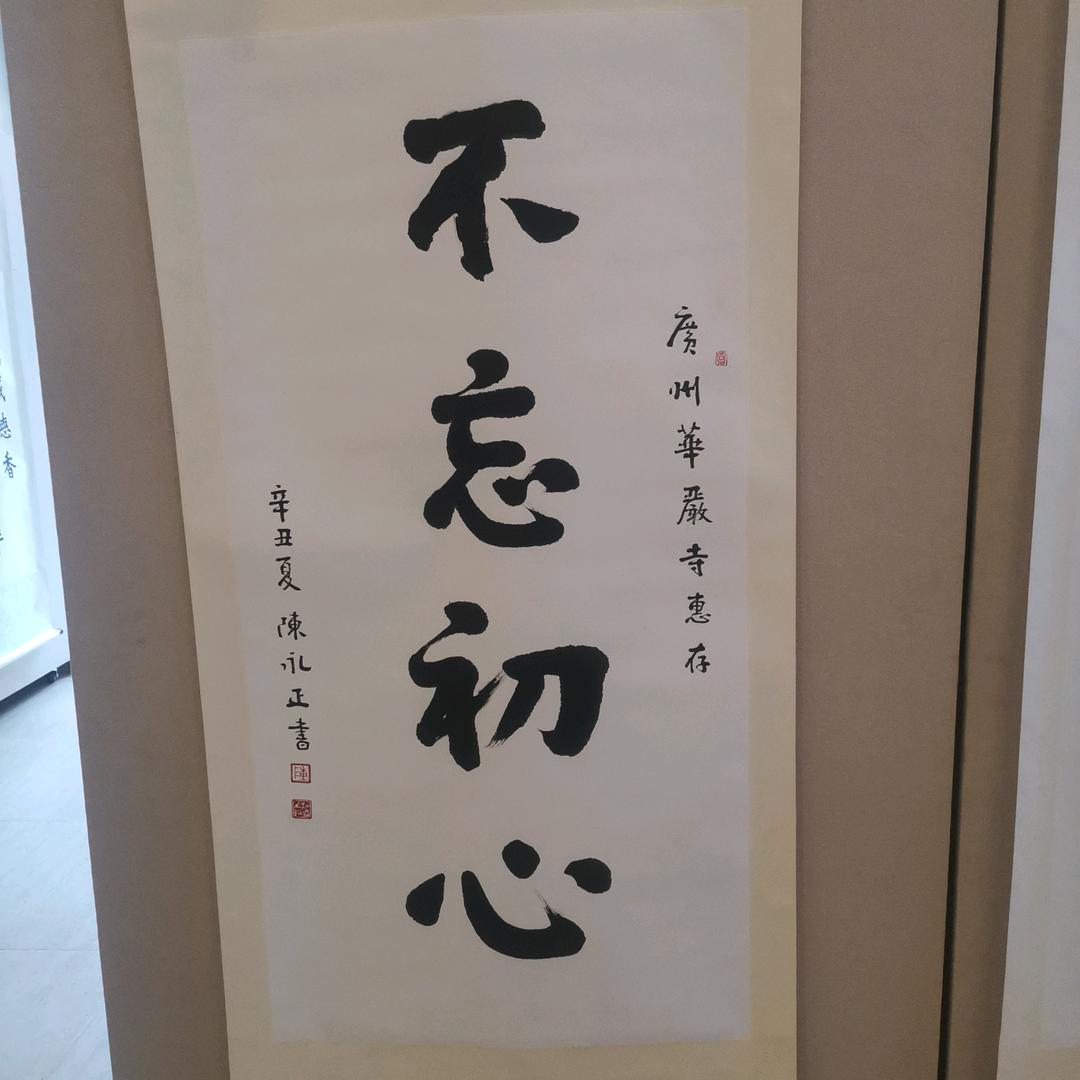 廣州華嚴寺惠存
不忘初心
辛丑夏陳永正書